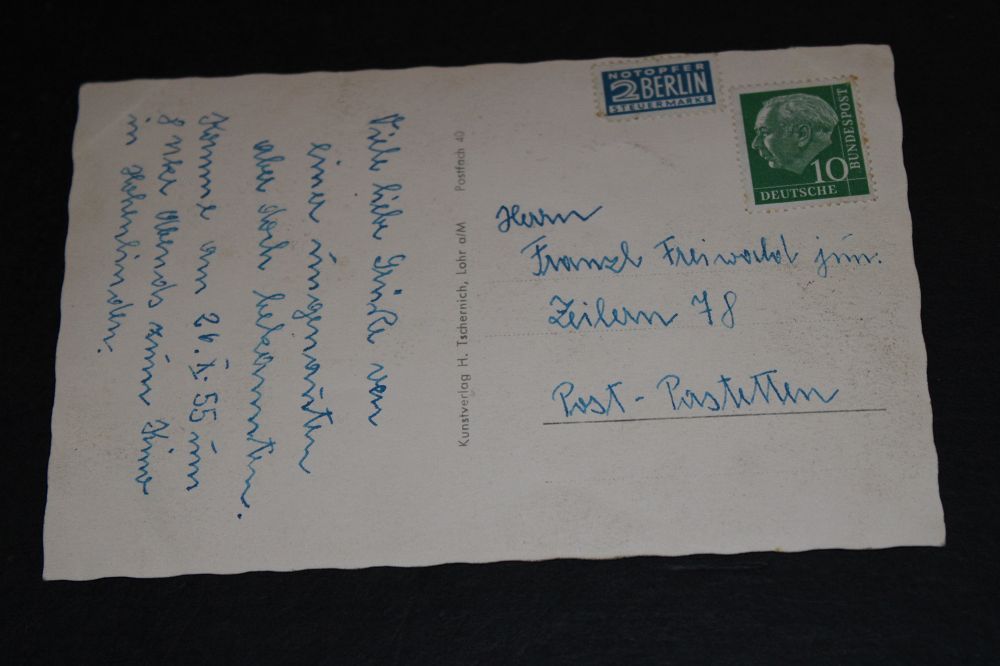 Viele liebe Grüße von
einer ungenannten
aber doch bekannten.
Komme am 26.X.55 um
8 Uhr Abends zum Kino
in Hohenlinden.
Kunstverlag H. Tschernich, Lohr a/M Postfach 40
NOTOPFER
2 BERLIN
STEUERMARKE
10
DEUTSCHE
BUNDESPOST
Herrn
Franzl Freiwald jun.
Zeilern 78
Post - Pastetten